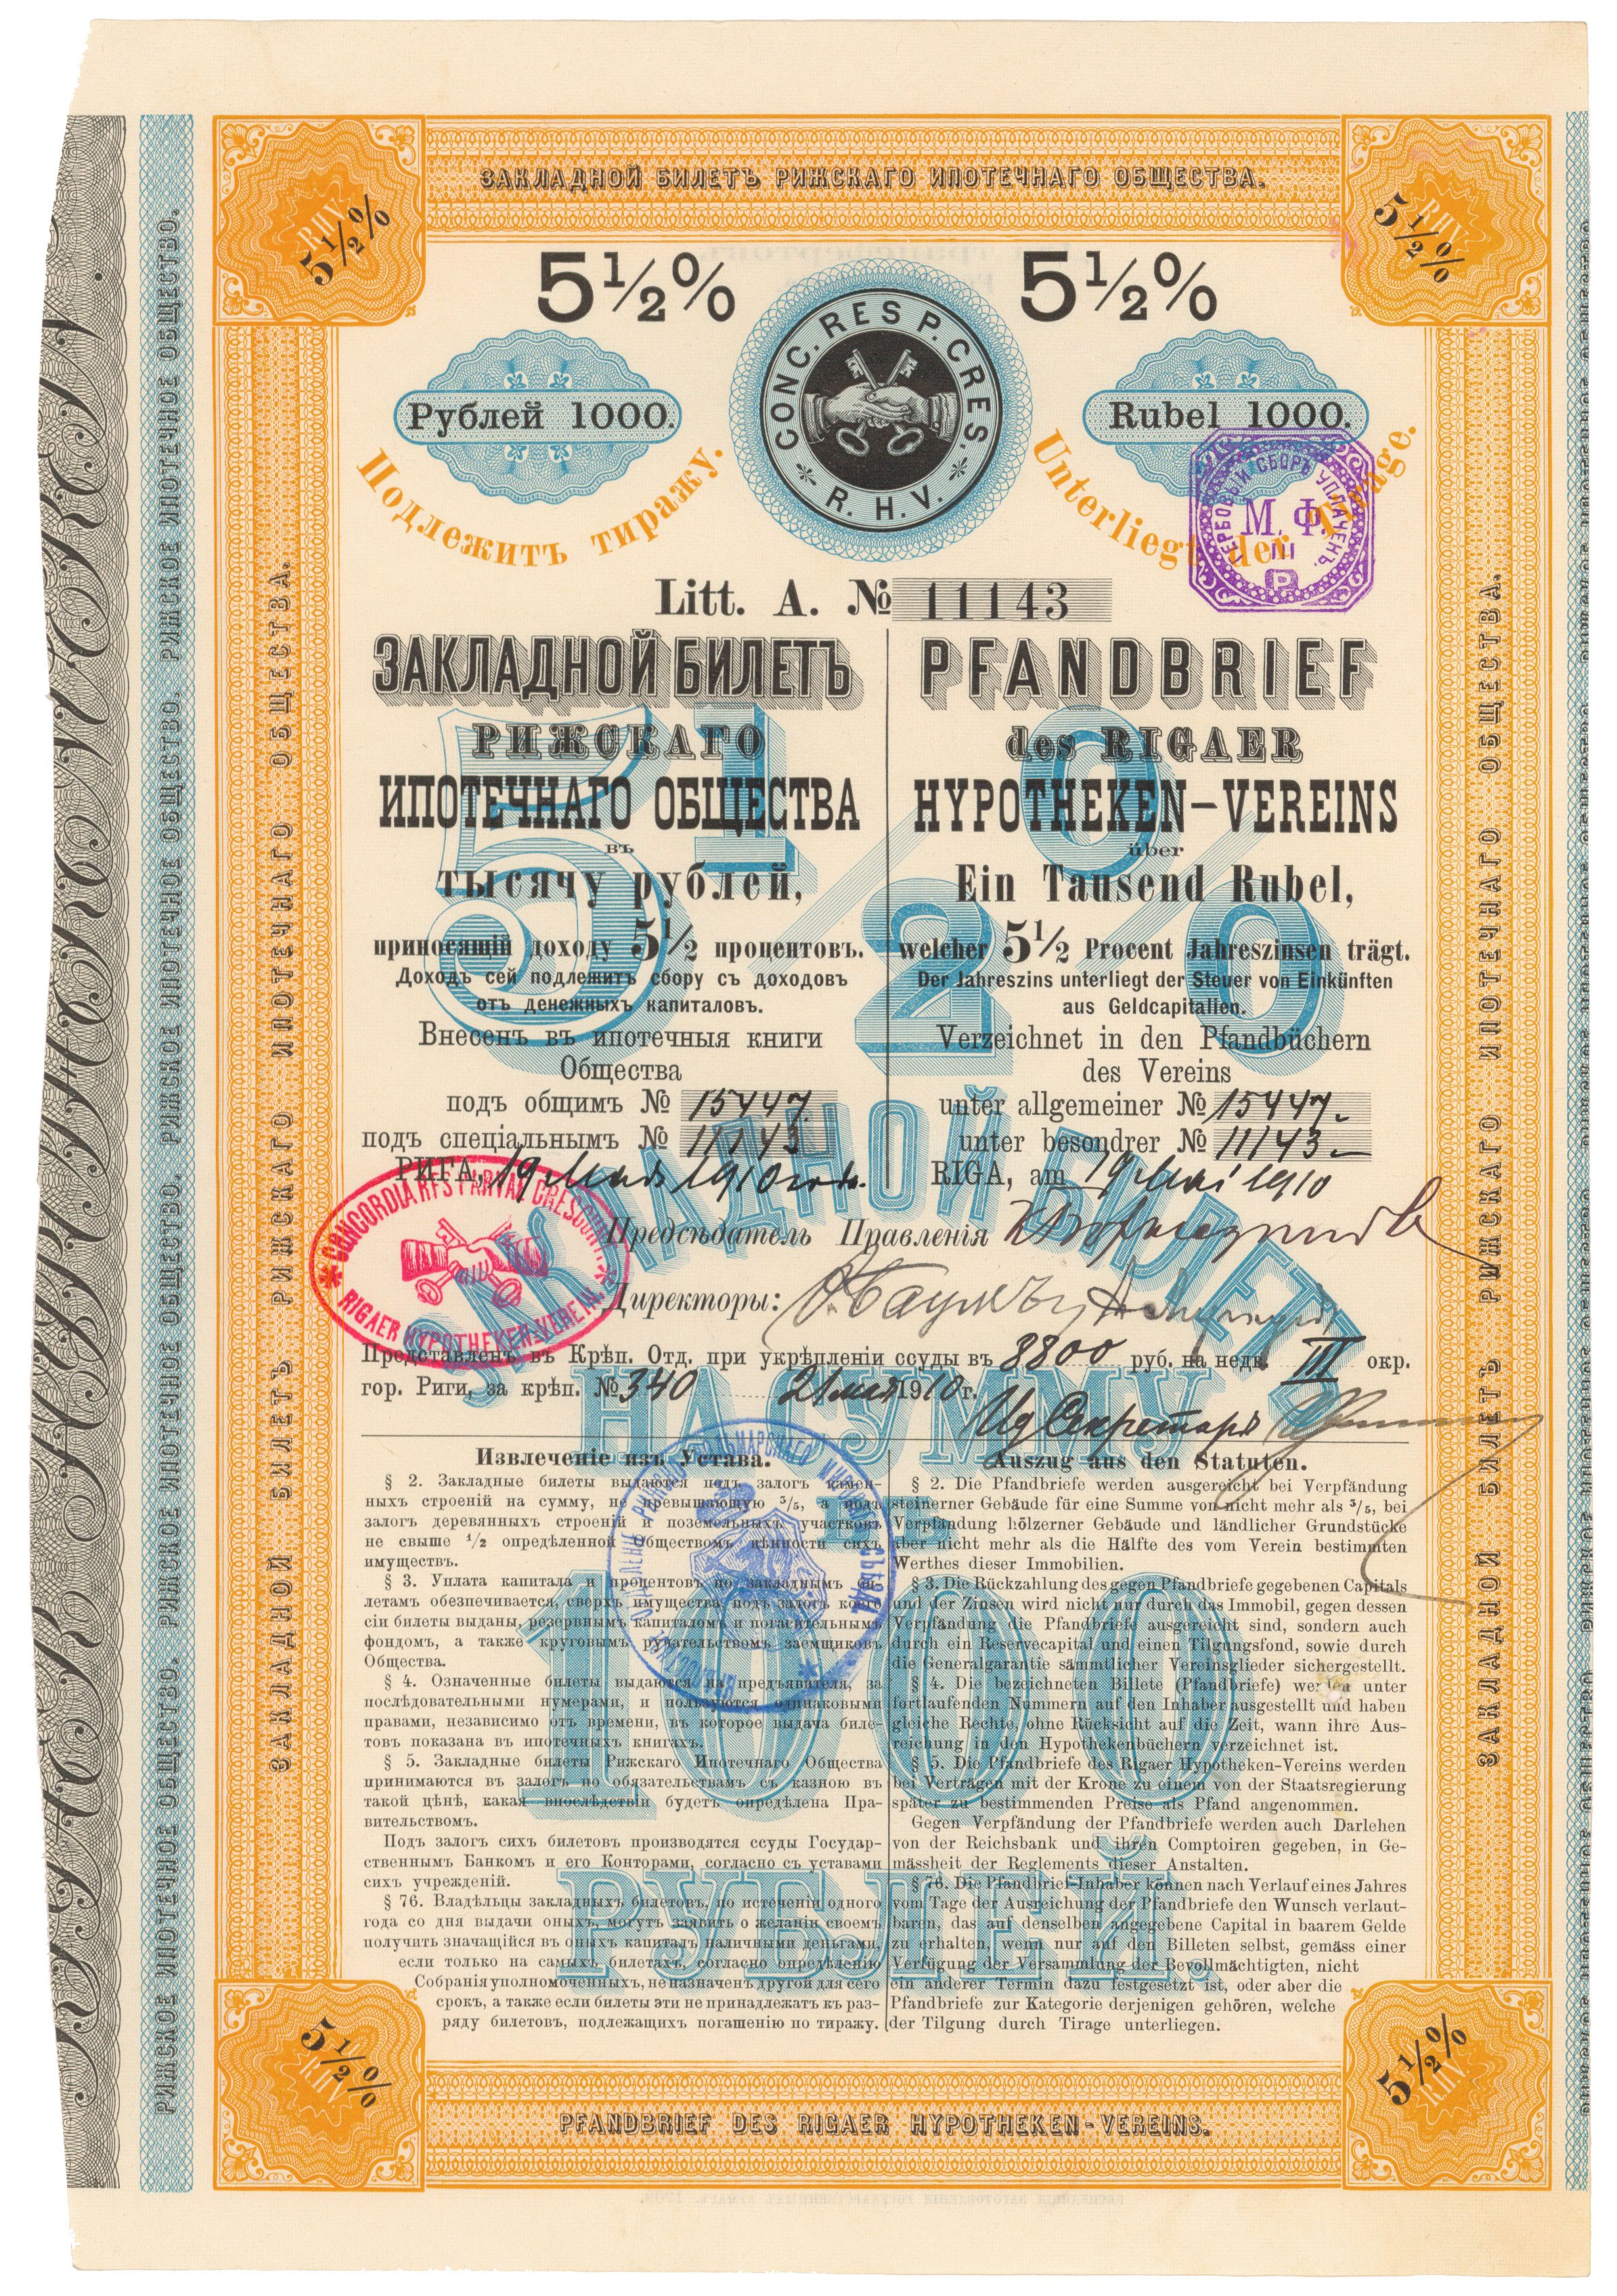 ЗАКЛАДНОЙ БИЛЕТЪ РИЖСКАГО ИПОТЕЧНАГО ОБЩЕСТВА.
5½%
5½%
5½%
5½%
CONC. RES P. CRES.
* R. H. V. *
Рублей 1000.
Rubel 1000.
Подлежитъ тиражу.
Unterliegt der Tirage.
ГЕРБОВЫЙ СБОРЪ УПЛАЧЕНЪ.
М. Ф.
III
Р
Litt. A. № 11143
ЗАКЛАДНОЙ БИЛЕТЪ
РИЖСКАГО
ИПОТЕЧНАГО ОБЩЕСТВА
въ
тысячу рублей,
приносящій доходу 5½ процентовъ.
Доходъ сей подлежитъ сбору съ доходовъ
отъ денежныхъ капиталовъ.
Внесенъ въ ипотечныя книги
Общества
подъ общимъ № 15447.
подъ спеціальнымъ № 11143
РИГА, 19 Мая 1910 года.
PFANDBRIEF
des RIGAER
HYPOTHEKEN-VEREINS
über
Ein Tausend Rubel,
welcher 5½ Procent Jahreszinsen trägt.
Der Jahreszins unterliegt der Steuer von Einkünften
aus Geldcapitalien.
Verzeichnet in den Pfandbüchern
des Vereins
unter allgemeiner № 15447.
unter besondrer № 11143
RIGA, am 19 Mai 1910
5½%
ЗАКЛАДНОЙ БИЛЕТЪ
НА СУММУ
1000
РУБЛЕЙ.
CONCORDIA RES PARVAE CRESCUNT.
* RIGAER HYPOTHEKEN-VEREIN. *
Предсѣдатель Правленія
Директоры:
Представленъ въ Крѣп. Отд. при укрѣпленіи ссуды въ 3800 руб. на недв. III окр.
гор. Риги, за крѣп. № 340 21 мая 1910 г.
Ид Секретаря
Извлеченіе изъ Устава.
§ 2. Закладные билеты выдаются подъ залогъ камен-
ныхъ строеній на сумму, не превышающую ³/₅, а подъ
залогъ деревянныхъ строеній и поземельныхъ участковъ
не свыше ½ опредѣленной Обществомъ цѣнности сихъ
имуществъ.
§ 3. Уплата капитала и процентовъ по закладнымъ би-
летамъ обезпечивается, сверхъ имущества, подъ залогъ коего
сіи билеты выданы, резервнымъ капиталомъ и погасительнымъ
фондомъ, а также круговымъ ручательствомъ заемщиковъ
Общества.
§ 4. Означенные билеты выдаются на предъявителя, за
послѣдовательными нумерами, и пользуются одинаковыми
правами, независимо отъ времени, въ которое выдача биле-
товъ показана въ ипотечныхъ книгахъ.
§ 5. Закладные билеты Рижскаго Ипотечнаго Общества
принимаются въ залогъ по обязательствамъ съ казною въ
такой цѣнѣ, какая впослѣдствіи будетъ опредѣлена Пра-
вительствомъ.
Подъ залогъ сихъ билетовъ производятся ссуды Государ-
ственнымъ Банкомъ и его Конторами, согласно съ уставами
сихъ учрежденій.
§ 76. Владѣльцы закладныхъ билетовъ, по истеченіи одного
года со дня выдачи оныхъ, могутъ заявить о желаніи своемъ
получить значащійся въ оныхъ капиталъ наличными деньгами,
если только на самыхъ билетахъ, согласно опредѣленію
Собранія уполномоченныхъ, не назначенъ другой для сего
срокъ, а также если билеты эти не принадлежатъ къ раз-
ряду билетовъ, подлежащихъ погашенію по тиражу.
Auszug aus den Statuten.
§ 2. Die Pfandbriefe werden ausgereicht bei Verpfändung
steinerner Gebäude für eine Summe von nicht mehr als ³/₅, bei
Verpfändung hölzerner Gebäude und ländlicher Grundstücke
aber nicht mehr als die Hälfte des vom Verein bestimmten
Werthes dieser Immobilien.
§ 3. Die Rückzahlung des gegen Pfandbriefe gegebenen Capitals
und der Zinsen wird nicht nur durch das Immobil, gegen dessen
Verpfändung die Pfandbriefe ausgereicht sind, sondern auch
durch ein Reservecapital und einen Tilgungsfond, sowie durch
die Generalgarantie sämmtlicher Vereinsglieder sichergestellt.
§ 4. Die bezeichneten Billete (Pfandbriefe) werden unter
fortlaufenden Nummern auf den Inhaber ausgestellt und haben
gleiche Rechte, ohne Rücksicht auf die Zeit, wann ihre Aus-
reichung in den Hypothekenbüchern verzeichnet ist.
§ 5. Die Pfandbriefe des Rigaer Hypotheken-Vereins werden
bei Verträgen mit der Krone zu einem von der Staatsregierung
später zu bestimmenden Preise als Pfand angenommen.
Gegen Verpfändung der Pfandbriefe werden auch Darlehen
von der Reichsbank und ihren Comptoiren gegeben, in Ge-
mässheit der Reglements dieser Anstalten.
§ 76. Die Pfandbrief-Inhaber können nach Verlauf eines Jahres
vom Tage der Ausreichung der Pfandbriefe den Wunsch verlaut-
baren, das auf denselben angegebene Capital in baarem Gelde
zu erhalten, wenn nur auf den Billeten selbst, gemäss einer
Verfügung der Versammlung der Bevollmächtigten, nicht
ein anderer Termin dazu festgesetzt ist, oder aber die
Pfandbriefe zur Kategorie derjenigen gehören, welche
der Tilgung durch Tirage unterliegen.
5½%
5½%
PFANDBRIEF DES RIGAER HYPOTHEKEN-VEREINS.
ЗАКЛАДНОЙ БИЛЕТЪ РИЖСКАГО ИПОТЕЧНАГО ОБЩЕСТВА.
ЗАКЛАДНОЙ БИЛЕТЪ РИЖСКАГО ИПОТЕЧНАГО ОБЩЕСТВА.
РИЖСКОЕ ИПОТЕЧНОЕ ОБЩЕСТВО. РИЖСКОЕ ИПОТЕЧНОЕ ОБЩЕСТВО. РИЖСКОЕ ИПОТЕЧНОЕ ОБЩЕСТВО. РИЖСКОЕ ИПОТЕЧНОЕ ОБЩЕСТВО.